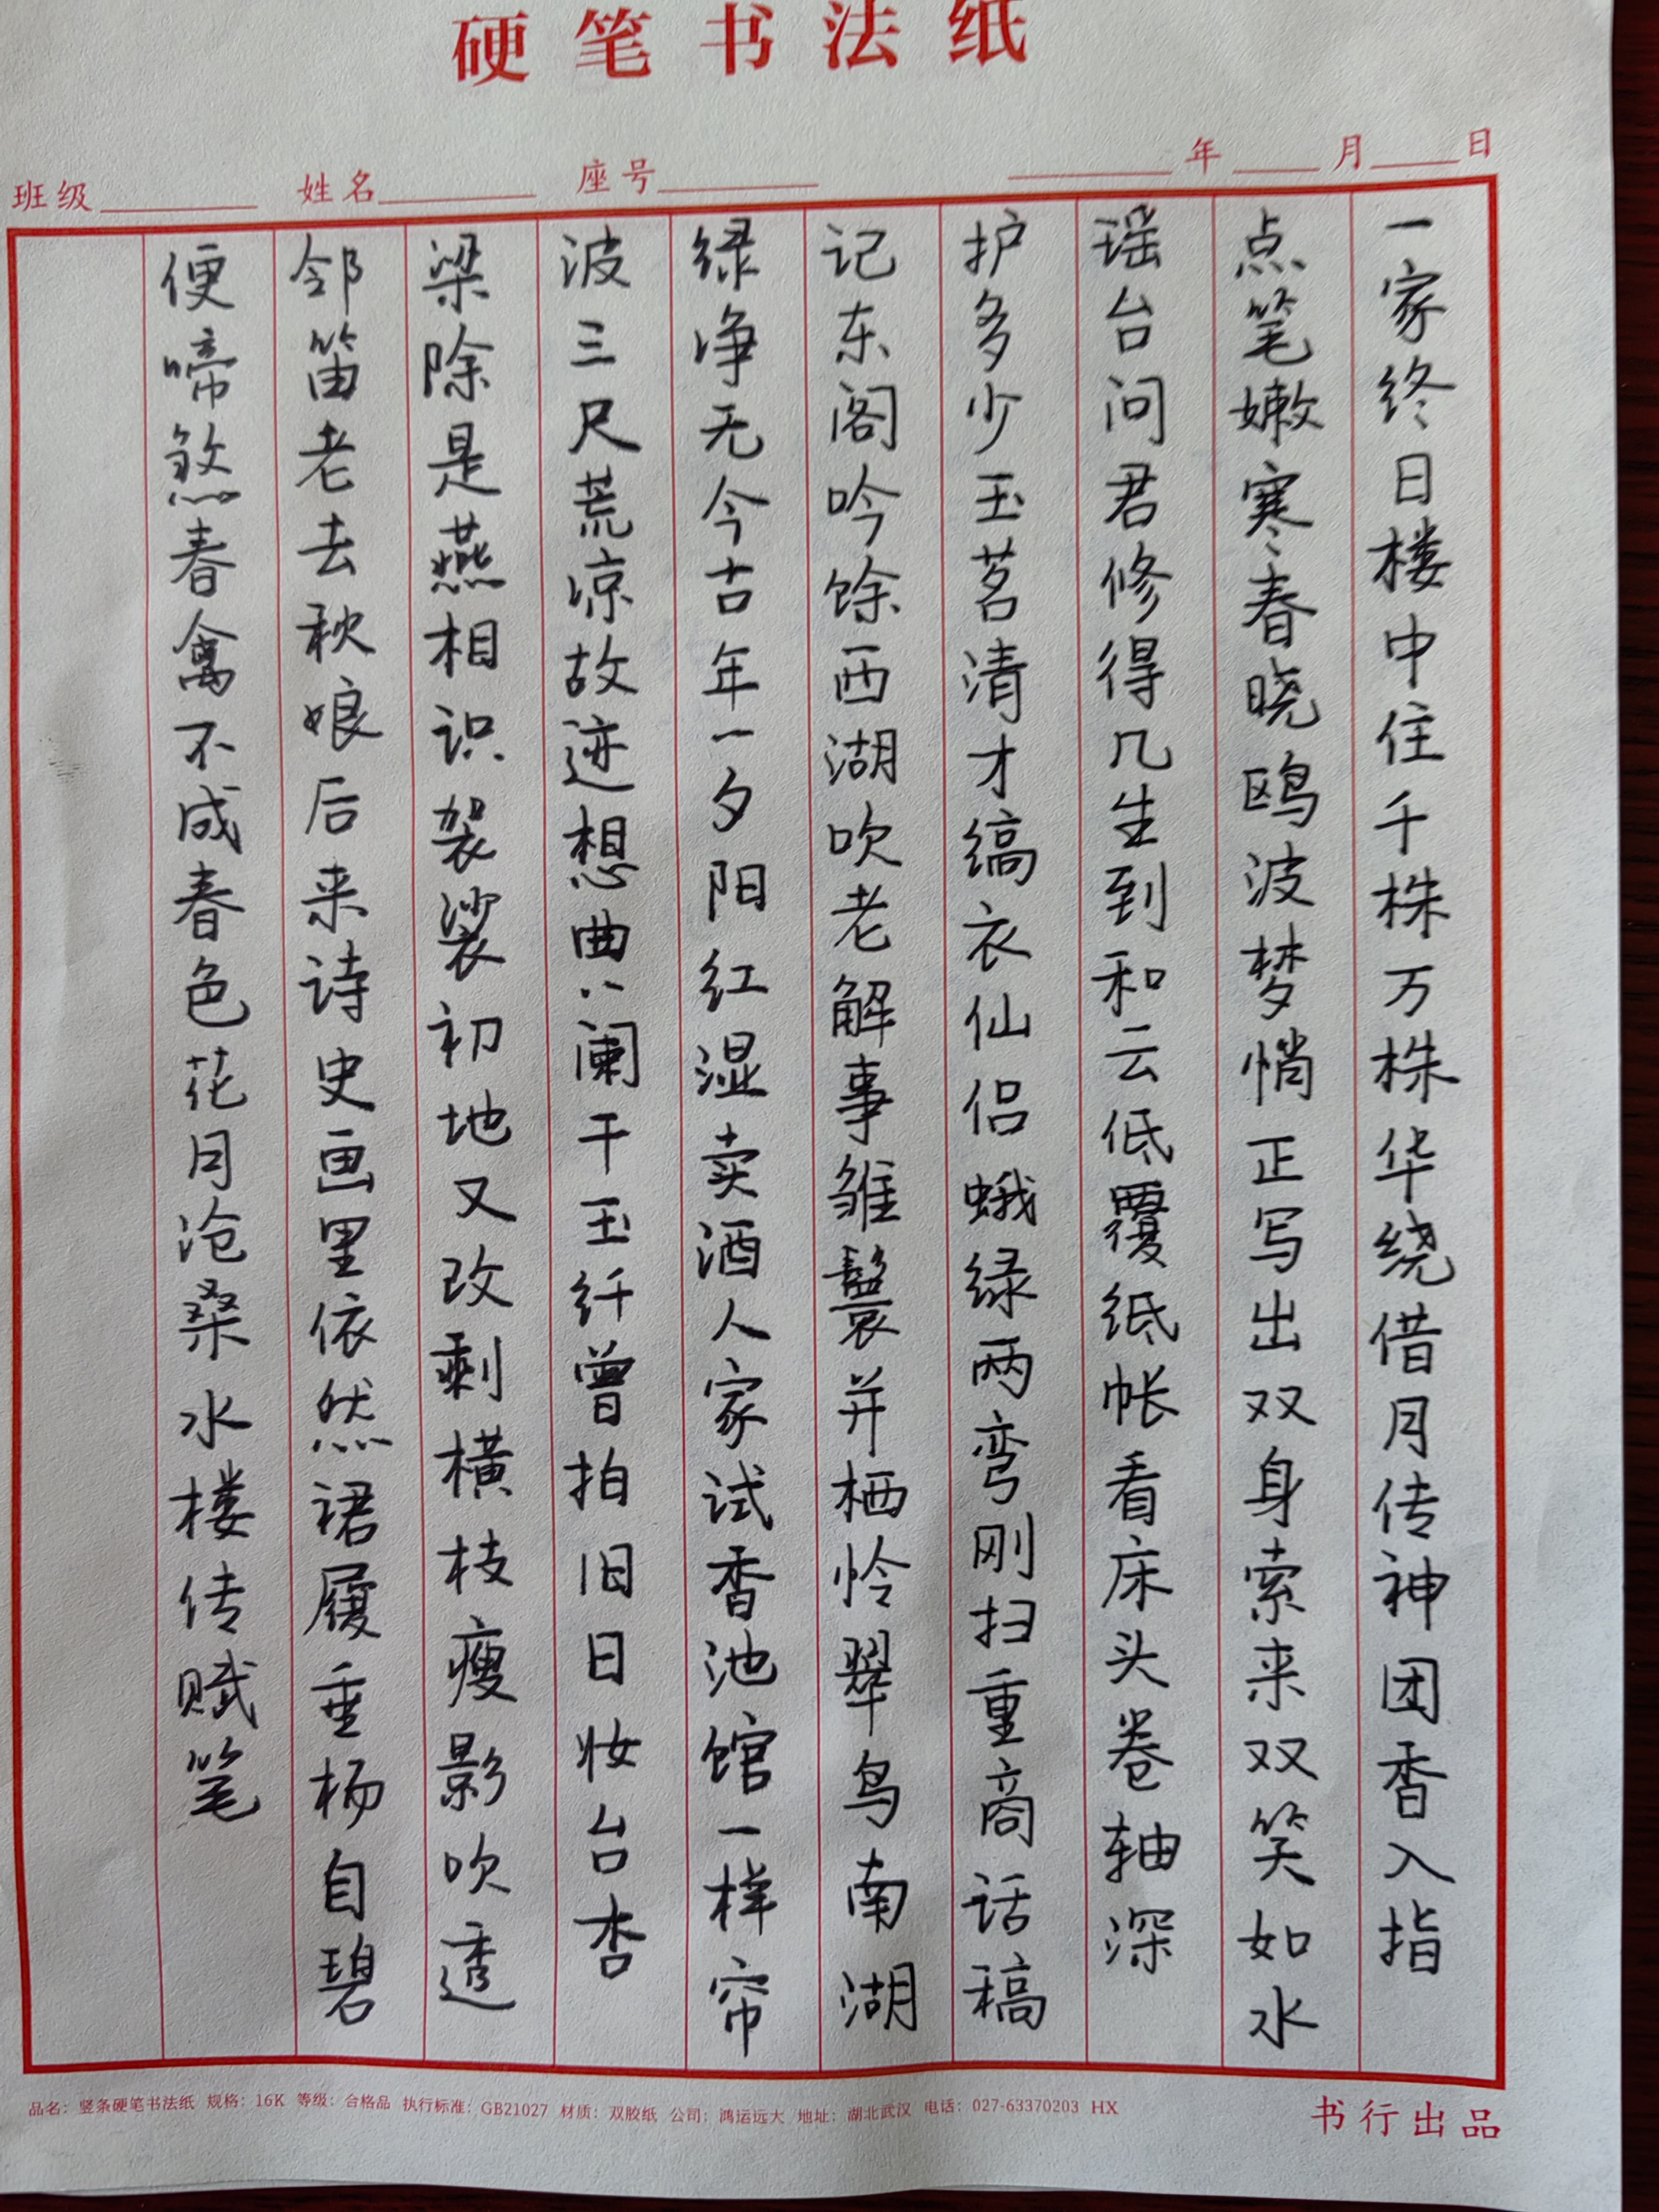 硬笔书法纸
班级 姓名 座号 年 月 日
一家终日楼中住千株万株华绕借月传神团香入指
点笔嫩寒春晓鸥波梦悄正写出双身索来双笑如水
瑶台问君修得几生到和云低覆纸帐看床头卷轴深
护多少玉茗清才缟衣仙侣蛾绿两弯刚扫重商话稿
记东阁吟馀西湖吹老解事雏鬟并栖怜翠鸟南湖
绿净无今古年一夕阳红湿卖酒人家试香池馆一样帘
波三尺荒凉故迹想曲八阑干玉纤曾拍旧日妆台杏
梁除是燕相识袈裟初地又改剩横枝瘦影吹透
邻笛老去秋娘后来诗史画里依然裙屐垂杨自碧
便啼煞春禽不成春色花月沧桑水楼传赋笔
品名：竖条硬笔书法纸 规格：16K 等级：合格品 执行标准：GB21027 材质：双胶纸 公司：鸿运远大 地址：湖北武汉 电话：027-63370203 HX
书行出品